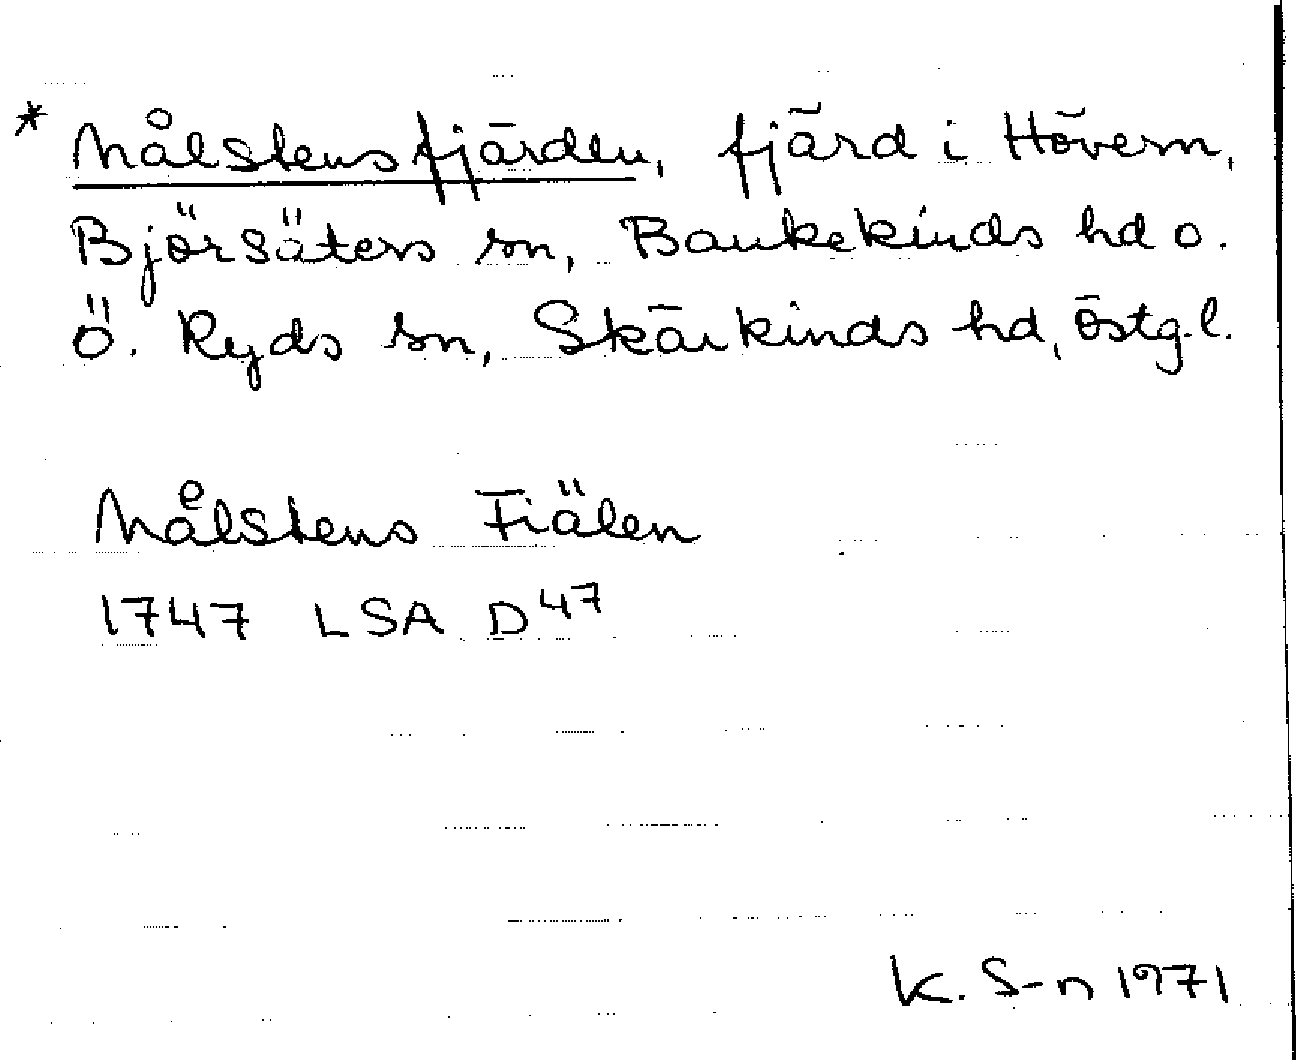 * Målstensfjärden, fjärd i Hövern,
Björsäters sn, Bankekinds hd o.
Ö. Ryds sn, Skärkinds hd, Östg.l.
Målstens Fiälen
1747 LSA D47
K. S-n 1971